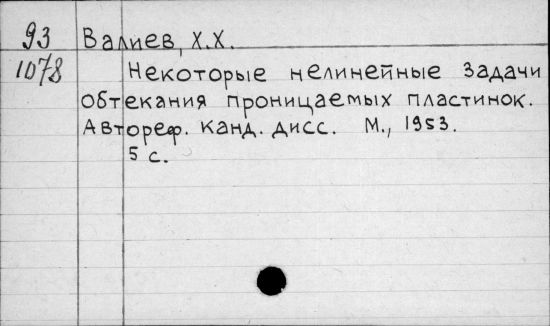 93 Валиев, Х.Х.
1078 Некоторые нелинейные задачи
обтекания проницаемых пластинок.
Автореф. канд. дисс. М., 1953.
5 с.